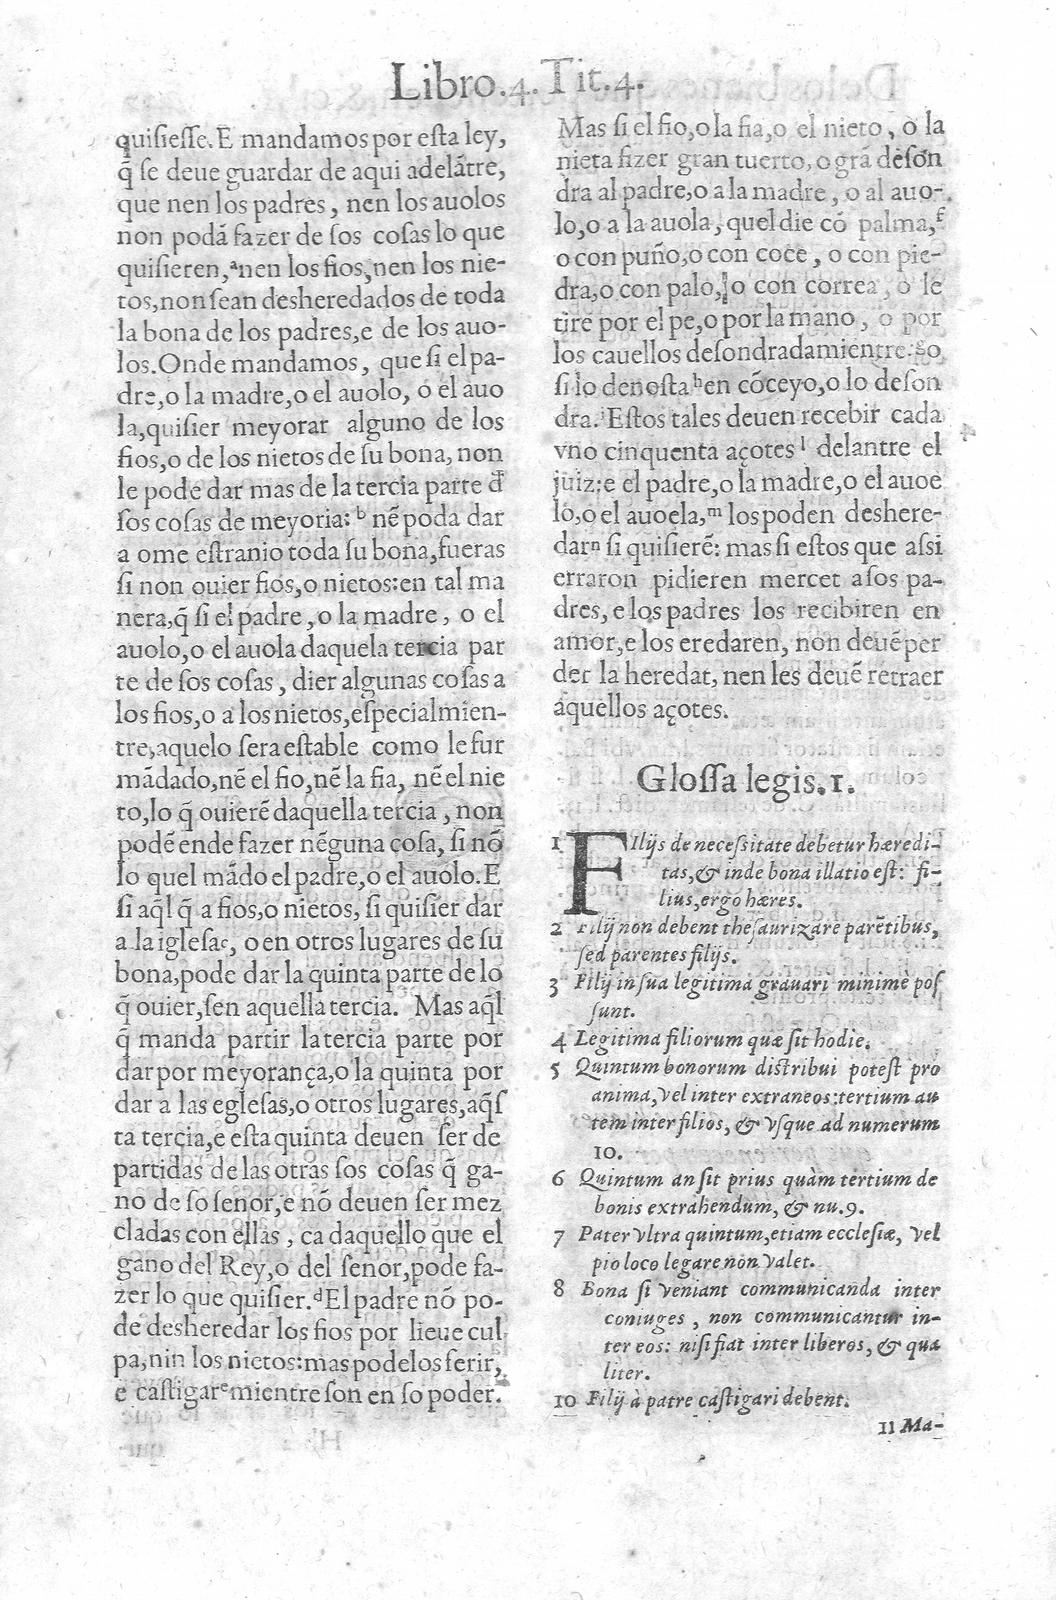 Libro.4.Tit.4.
quiſieſſe.E mandamos por eſta ley,
q̃ ſe deue guardar de aqui adelãtre,
que nen los padres, nen los auolos
non podã fazer de ſos coſas lo que
quiſieren,ᵃnen los fios,nen los nie-
tos,non ſean desheredados de toda
la bona de los padres,e de los auo-
los.Onde mandamos, que ſi el pa-
dre,o la madre,o el auolo, o el auo
la,quiſier meyorar alguno de los
fios,o de los nietos de ſu bona, non
le pode dar mas de la tercia parte d̃
ſos coſas de meyoria:ᵇ nẽ poda dar
a ome eſtranio toda ſu bona,fueras
ſi non ouier fios,o nietos:en tal ma
nera,q̃ ſi el padre,o la madre, o el
auolo,o el auola daquela tercia par
te de ſos coſas, dier algunas coſas a
los fios,o a los nietos,eſpecialmien-
tre,aquelo ſera eſtable como le fur
mãdado,nẽ el fio,nẽ la fia, nẽ el nie
to,lo q̃ ouierẽ daquella tercia, non
podẽ ende fazer nẽguna coſa, ſi nõ
lo quel mãdo el padre,o el auolo.E
ſi aq̃l q̃ a fios,o nietos, ſi quiſier dar
a la igleſaᶜ, o en otros lugares de ſu
bona,pode dar la quinta parte de lo
q̃ ouier,ſen aquella tercia. Mas aq̃l
q̃ manda partir la tercia parte por
dar por meyorança,o la quinta por
dar a las egleſas,o otros lugares,aq̃ſ
ta tercia,e eſta quinta deuen ſer de
partidas de las otras ſos coſas q̃ ga-
no de ſo ſenor,e nõ deuen ſer mez
cladas con ellas, ca daquello que el
gano del Rey,o del ſenor,pode fa-
zer lo que quiſier.ᵈEl padre nõ po-
de desheredar los fios por lieue cul
pa,nin los nietos:mas podelos ferir,
e caſtigarᵉmientre ſon en ſo poder.
Mas ſi el fio,o la fia,o el nieto, o la
nieta fizer gran tuerto,o grã deſon
dra al padre,o a la madre, o al auo-
lo,o a la auola, quel die cõ palma,ᶠ
o con puño,o con coce, o con pie-
dra,o con palo, o con correa, o le
tire por el pe,o por la mano, o por
los cauellos deſondradamientre:ᵍo
ſi lo denoſtaʰen cõceyo,o lo deſon
dra.ⁱEſtos tales deuen recebir cada
vno cinquenta açotesˡ delantre el
juiz:e el padre,o la madre,o el auoe
lo,o el auoela,ᵐ los poden deshere-
darⁿ ſi quiſierẽ: mas ſi eſtos que aſsi
erraron pidieren mercet a ſos pa-
dres,e los padres los recibiren en
amor,e los eredaren, non deuẽ per
der la heredat, nen les deuẽ retraer
aquellos açotes.
Gloſſa legis.1.
1 FIlijs de neceſsitate debetur hæredi-
tas,& inde bona illatio eſt: fi-
lius,ergo hæres.
2 Filij non debent theſaurizare parẽtibus,
ſed parentes filijs.
3 Filij in ſua legitima grauari minime poſ
ſunt.
4 Legitima filiorum quæ ſit hodie.
5 Quintum bonorum diſtribui poteſt pro
anima,vel inter extraneos:tertium au
tem inter filios, & vſque ad numerum
10.
6 Quintum an ſit prius quàm tertium de
bonis extrahendum, & nu.9.
7 Pater vltra quintum,etiam eccleſiæ, vel
pio loco legare non valet.
8 Bona ſi veniant communicanda inter
coniuges, non communicantur in-
ter eos: niſi fiat inter liberos, & qua
liter.
10 Filij à patre caſtigari debent.
11 Ma-